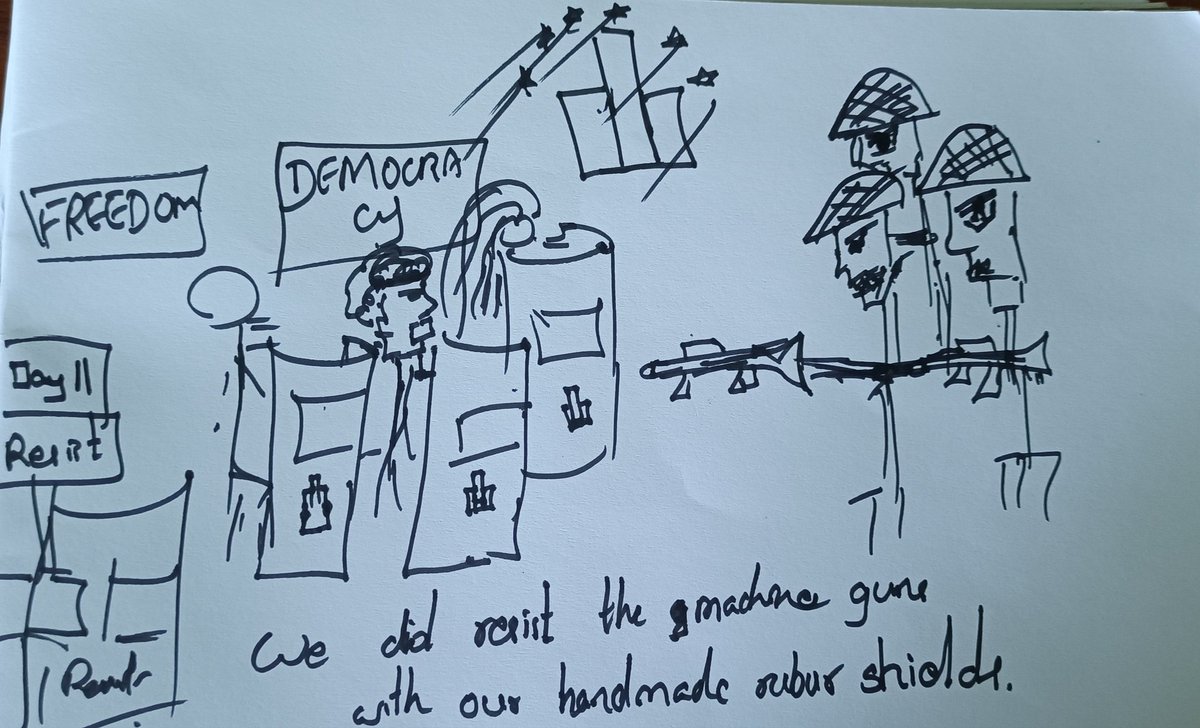 FREEDOM
DEMOCRA
cy
Day 11
Resist
We did resist the machine guns
with our handmade rubur shields.